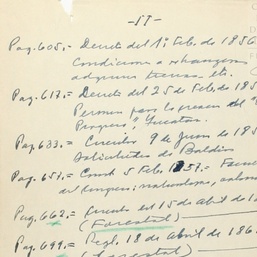 -57-
Pag. 605.= Decreto del 1º Feb. de 1856
Condiciones a extranjeros
adquieran terrenos, etc.
Pag. 617.= Decreto del 25 de Feb. de 185
Permiso para la
Progreso, Yucatan.
Pag. 633.= Circular 9 de Junio de 185
Solicitudes de Baldios
Pag. 657.= Const. 5 Feb. 1857.=
del Congreso: naturaleza,
Pag. 662.= Circular del 15 de Abril de 1
(Forestal)
Pag. 699.= Regl. 18 de Abril de 186
(Forestal)